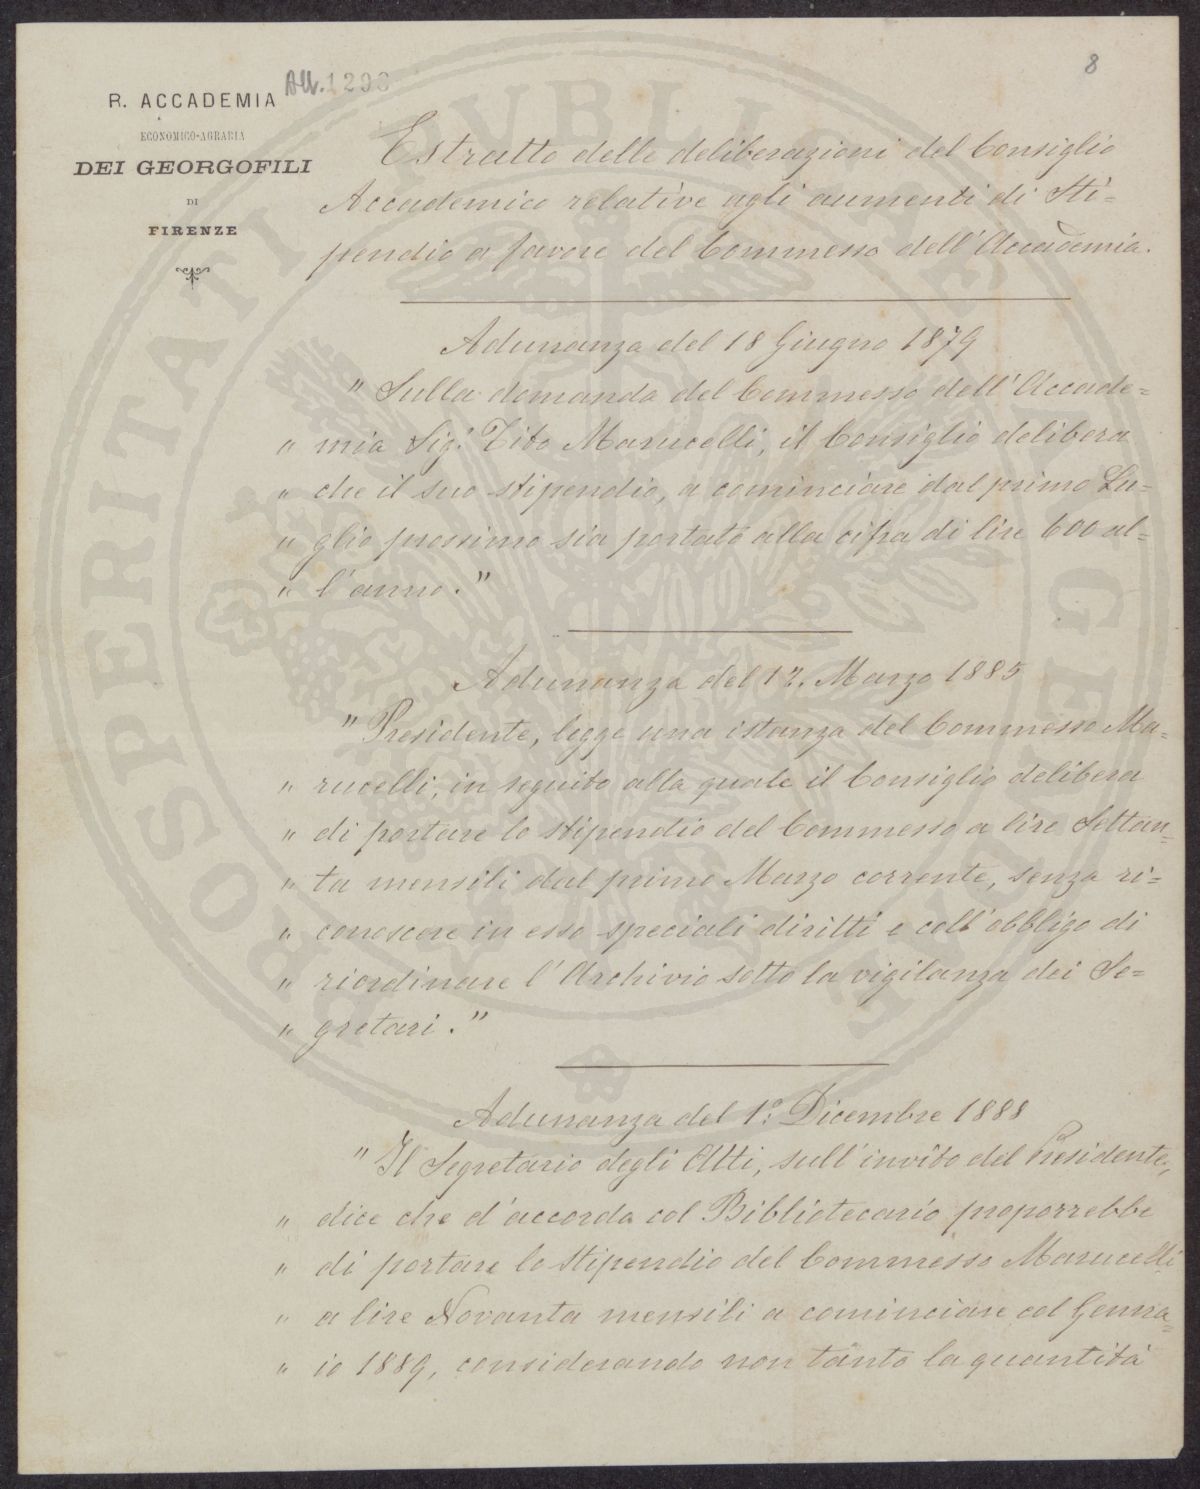 8
All. 1293
R. ACCADEMIA
ECONOMICO-AGRARIA
DEI GEORGOFILI
DI
FIRENZE
Estratto delle deliberazioni del Consiglio
Accademico relative agli aumenti di Sti=
pendio a favore del Commesso dell'Accademia.
Adunanza del 18 Giugno 1879
" Sulla domanda del Commesso dell'Accade=
" mia Sig.r Tito Marucelli, il Consiglio delibera
" che il suo stipendio, a cominciare dal primo Lu=
" glio prossimo sia portato alla cifra di lire 600 al=
" l'anno."
Adunanza del 17. Marzo 1885
" Presidente, legge una istanza del Commesso Ma=
" rucelli, in seguito alla quale il Consiglio delibera
" di portare lo stipendio del Commesso a lire Settan=
" ta mensili dal primo Marzo corrente, senza ri=
" conoscere in esso speciali diritti e coll'obbligo di
" riordinare l'Archivio sotto la vigilanza dei Se=
" gretari."
Adunanza del 1.o Dicembre 1888
" Il Segretario degli Atti, sull'invito del Presidente,
" dice che d'accordo col Bibliotecario proporrebbe
" di portare lo stipendio del Commesso Marucelli
" a lire Novanta mensili a cominciare col Genna=
" io 1889, considerando non tanto la quantità
PROSPERITATI PUBLICAE AUGENDAE